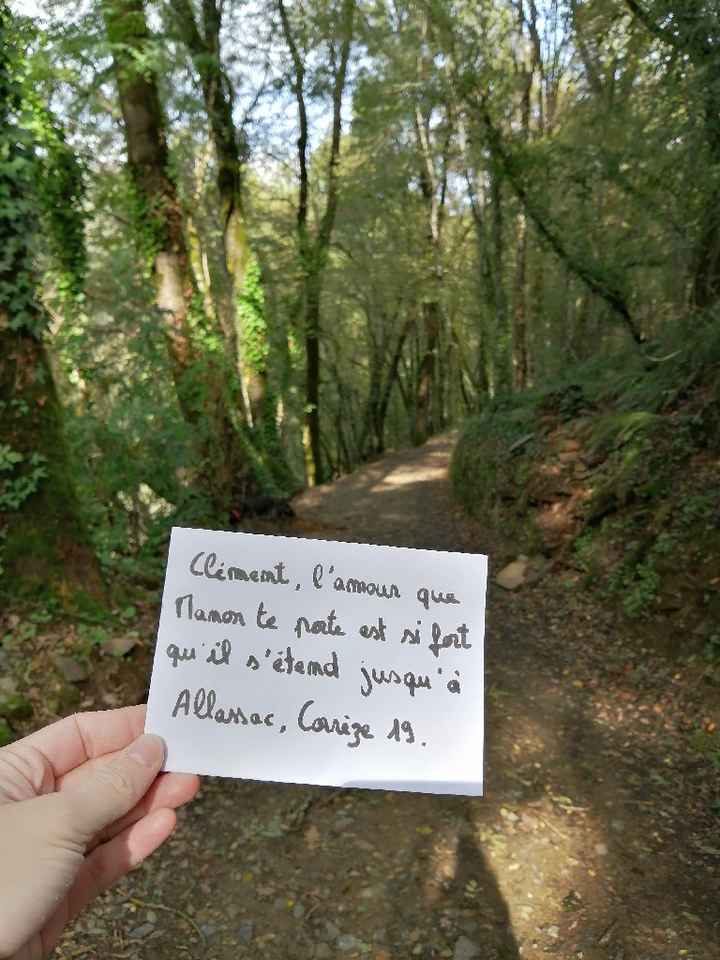 Clément, l'amour que
Manon te porte est si fort
qu'il s'étend jusqu'à
Allassac, Corrèze 19.